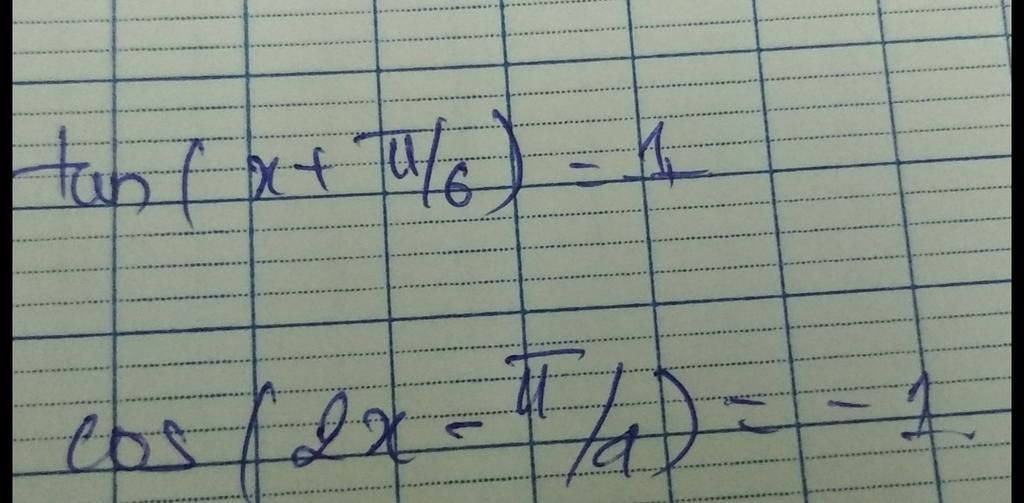 tan( x + π/6 ) = 1
cos( 2x - π/4 ) = - 1